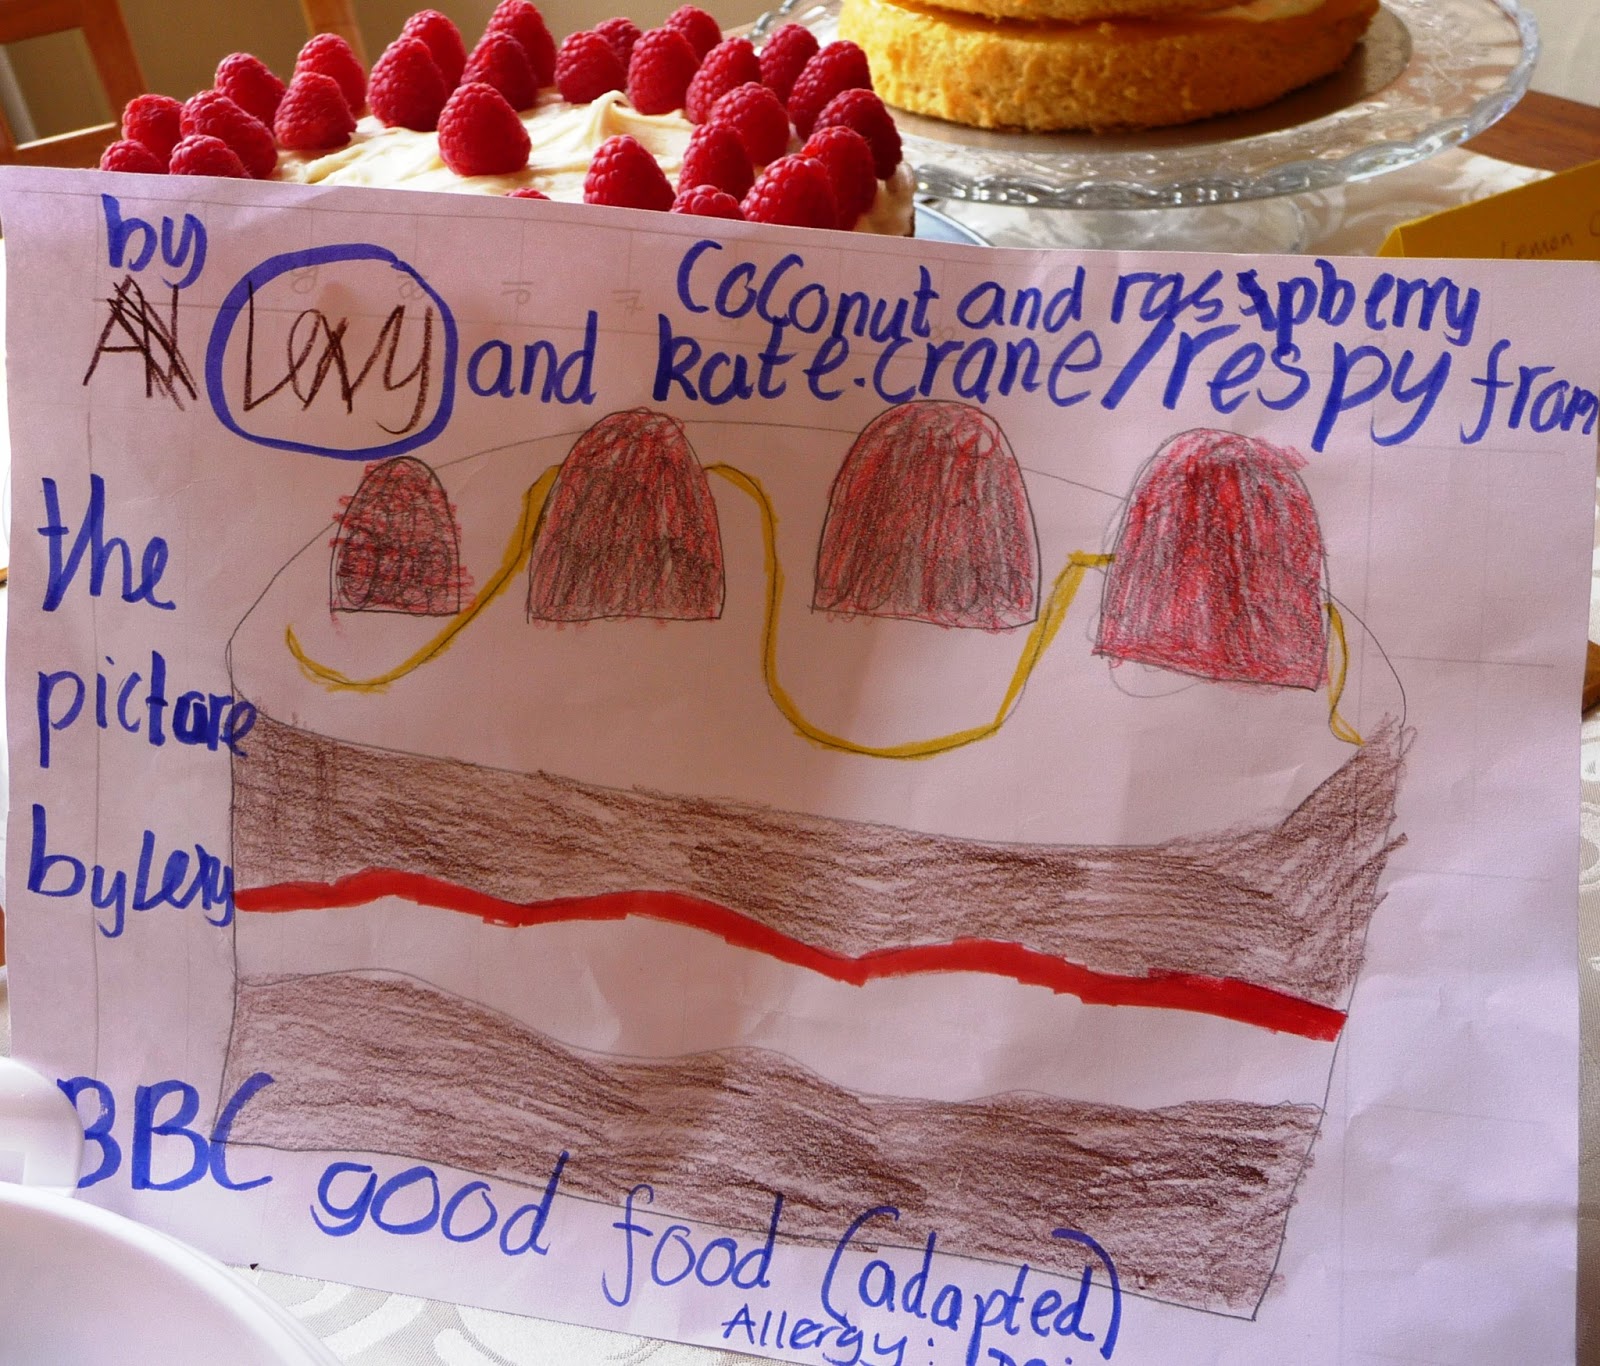 by
Lexy and kate.crane/respy from
Coconut and raspberry
the
picture
by Lexy
BBC good food (adapted)
Allergy:
Lemon